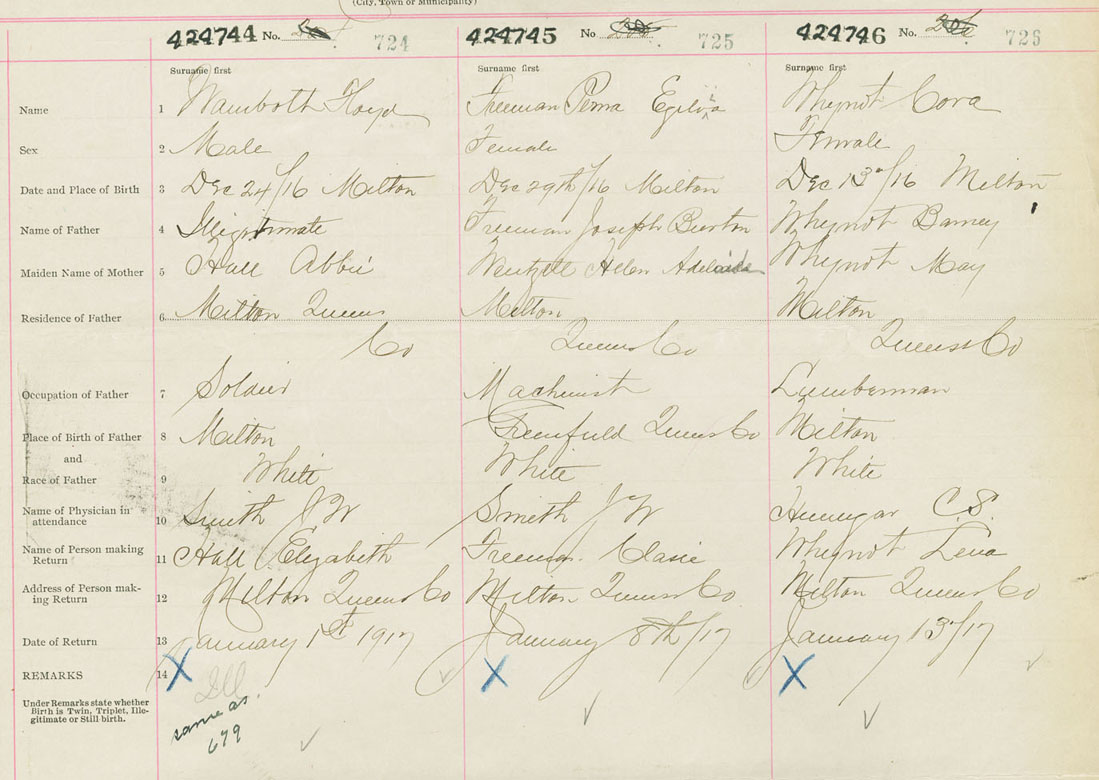 (City, Town or Municipality)
424744 No. 724 424745 No. 725 424746 No. 726
Surname first Surname first Surname first
Name 1 Wamboth Floyd Freeman Perna Whynot Cora
Sex 2 Male Female Female
Date and Place of Birth 3 Dec 24/16 Milton Dec 29th/16 Milton Dec 13/16 Milton
Name of Father 4 Illigitimate Freeman Joseph Burton Whynot Barney
Maiden Name of Mother 5 Hall Abbie Wentzell Helen Adelaide Whynot May
Residence of Father 6 Milton Queens Milton Milton
Co Queens Co Queens Co
Occupation of Father 7 Soldier Machinist Lumberman
Place of Birth of Father 8 Milton Queens Co Milton
and
Race of Father 9 White White White
Name of Physician in
attendance 10 Smith J W Smith J W C.S.
Name of Person making
Return 11 Hall Elizabeth Freeman Whynot Lena
Address of Person mak-
ing Return 12 Milton Queens Co Milton Queens Co Milton Queens Co
Date of Return 13 January 1st 1917 January 8th/17 January 13/17
REMARKS 14 X Ill X X
Under Remarks state whether
Birth is Twin, Triplet, Ille-
gitimate or Still birth.
same as
679